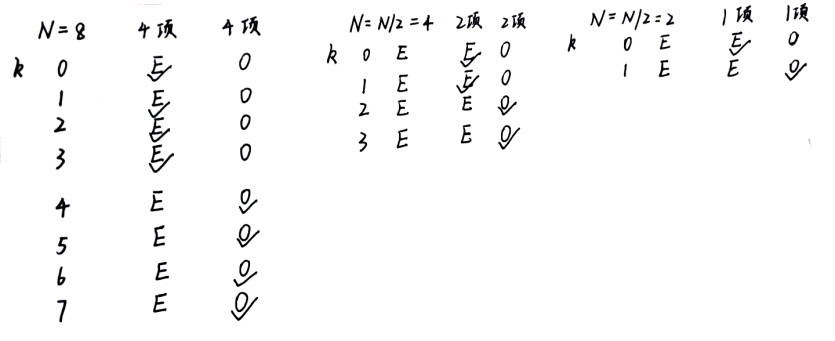 N=8 4项 4项
k 0 E✓ O
1 E✓ O
2 E✓ O
3 E✓ O
4 E O✓
5 E O✓
6 E O✓
7 E O✓
N=N/2=4 2项 2项
k 0 E E✓ O
1 E E✓ O
2 E E O✓
3 E E O✓
N=N/2=2 1项 1项
k 0 E E✓ O
1 E E O✓